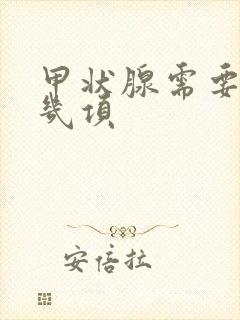 甲状腺需要
几项
安倍拉